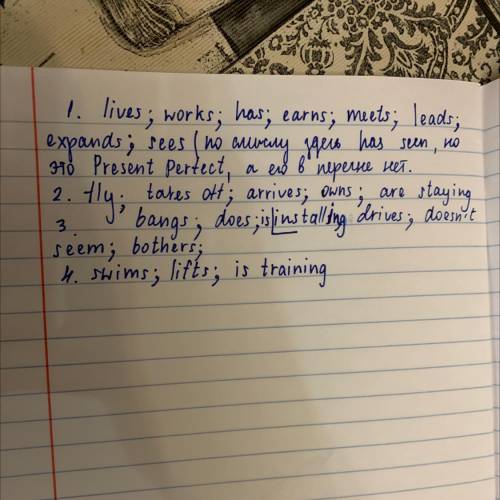 1. lives; works; has; earns; meets; leads;
expands; sees (по смыслу здесь has seen, но
это Present Perfect, а его в перечне нет.
2. fly; takes off; arrives; owns; are staying
3. ; bangs; does; is installing drives; doesn't
seem; bothers;
4. swims; lifts; is training